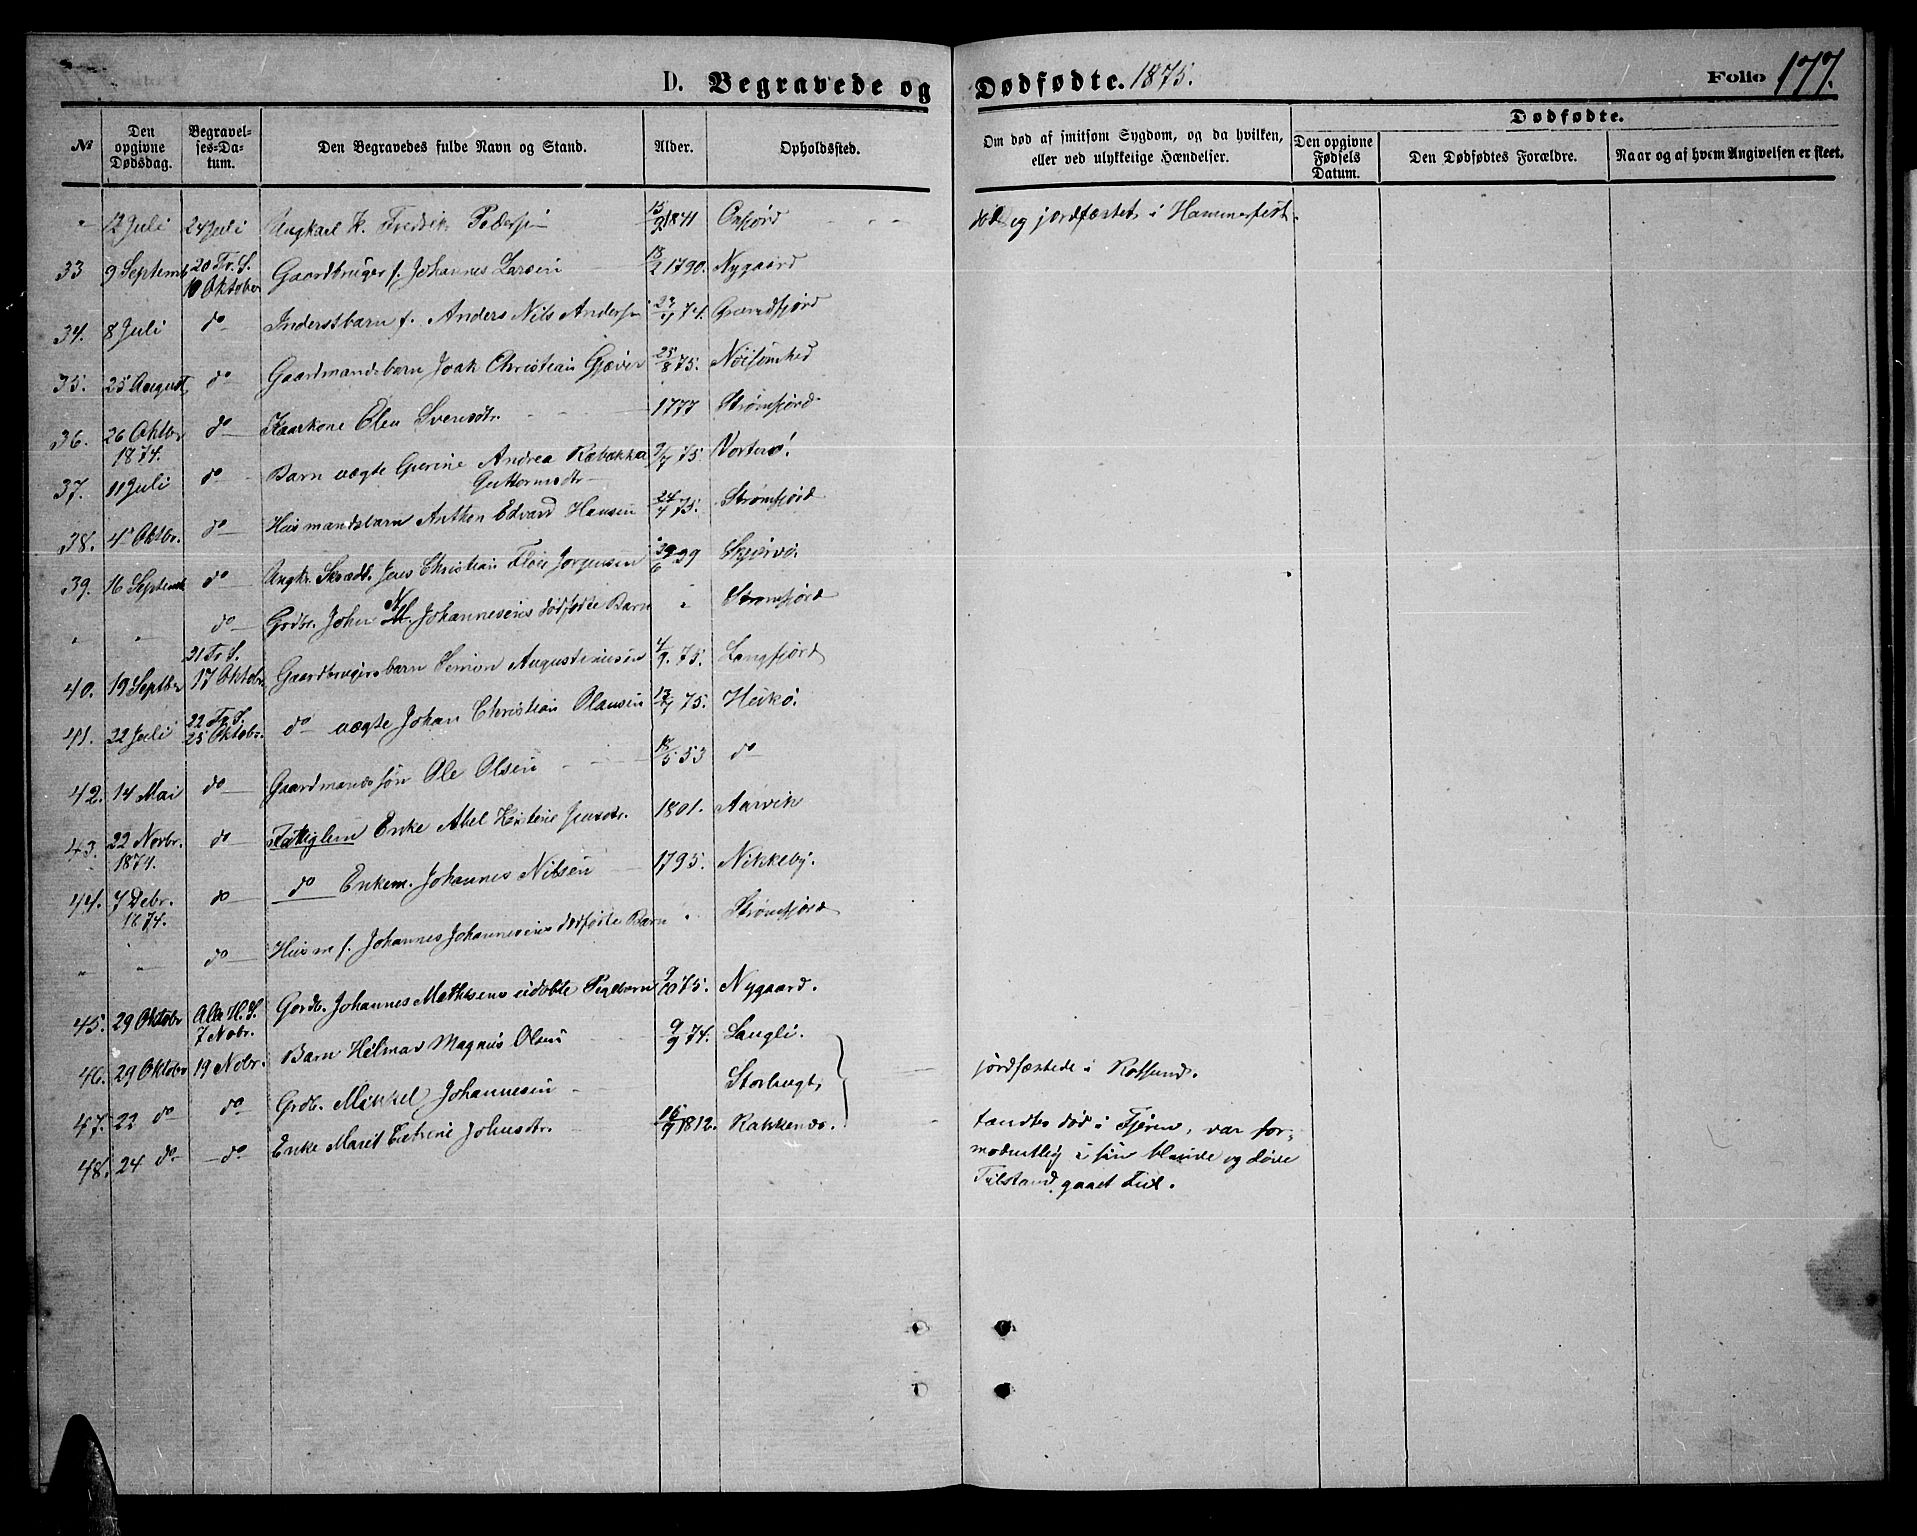 D. Begravede og Dødfødte. 1875. Folio 177.
№ Den opgivne Dødsdag. Begravelses-Datum. Den Begravedes fulde Navn og Stand. Alder. Opholdssted. Om død af smitsom Sygdom, og da hvilken, eller ved ulykkelige Hændelser. Dødfødte. Den opgivne Fødsels Datum. Den Dødfødtes Forældre. Naar og af hvem Angivelsen er skeet.
" 12 Juli 24 Juli Ungkarl K. Fredrik Pedersen 15/9 1841 død og jordfæstet i Hammerfest.
33 9 Septemb 20 Tr. S. 10 Oktober Gaardbruger f. Johannes Larsen 18/2 1790. Nygaard
34. 8 Juli do Inderstbarn f. Anders Nils Andersen 74. Grundfjord
35. 25 August do Gaardmandsbarn Joak Christian Gjæver 25/8 75. Nöisomhed
36. 26 Oktbr 1874. do Kaarkone Elen Svensdtr. 1777 Strømfjord
37. 11 Juli do Barn uægte Gurine Andrea Rebekka Guttormsdtr 9/7 75. Vorterø!
38. 4 Oktbr. do Husmandsbarn Anthon Edvard Hansen 24/4 75. Strømfjord
39. 16 Septemb do Ungkr. Skrædd. Jens Christian Fløie Jørgensen 6 39 Skjervø.
" " do Grdbr. Johan N. Johannesens dødfødte Barn " Strømfjord
40. 19 Septbr 21 Tr. S. 17 Oktobr Gaardbrugersbarn Simon Augustinusen 4/9. 75. Langfjord
41. 22 Juli 22 Tr. S. 25 Oktobr. do uægte Johan Christian Olausen 13/7 75. Heikø.
42. 14 Mai do Gaardmandssøn Ole Olsen 18/5 53 do
43. 22 Novbr. 1874. do Fattiglem Enke Abel Kirstine Jensdtr. 1801. Aarvik
44. 7 Debr. 1874. do do Enkem. Johannes Nilsen 1795. Nikkeby.
" " do Husm f. Johannes Johannesens dødfødte Barn " Strømfjord
45. 29 Oktobr Alle H. S. 7 Nobr. Gordb. Johannes Mathisens udøbte Pigebarn 9/10 75. Nygaard.
46. 29 Oktobr 19 Nobr. Barn Hilmar Magnus Olsen 9/9 74. Langli.
47. 22 do do Grdb. Mikkel Johannesen Storbugt jordfæstede i Rotsund.
48. 24 do do Enke Marit Johnsdtr. 15/9 1812. Rakkenæs. fandtes død i Fjæren, var for-
modentlig i sin blinde og døve
Tilstand gaaet Feil.